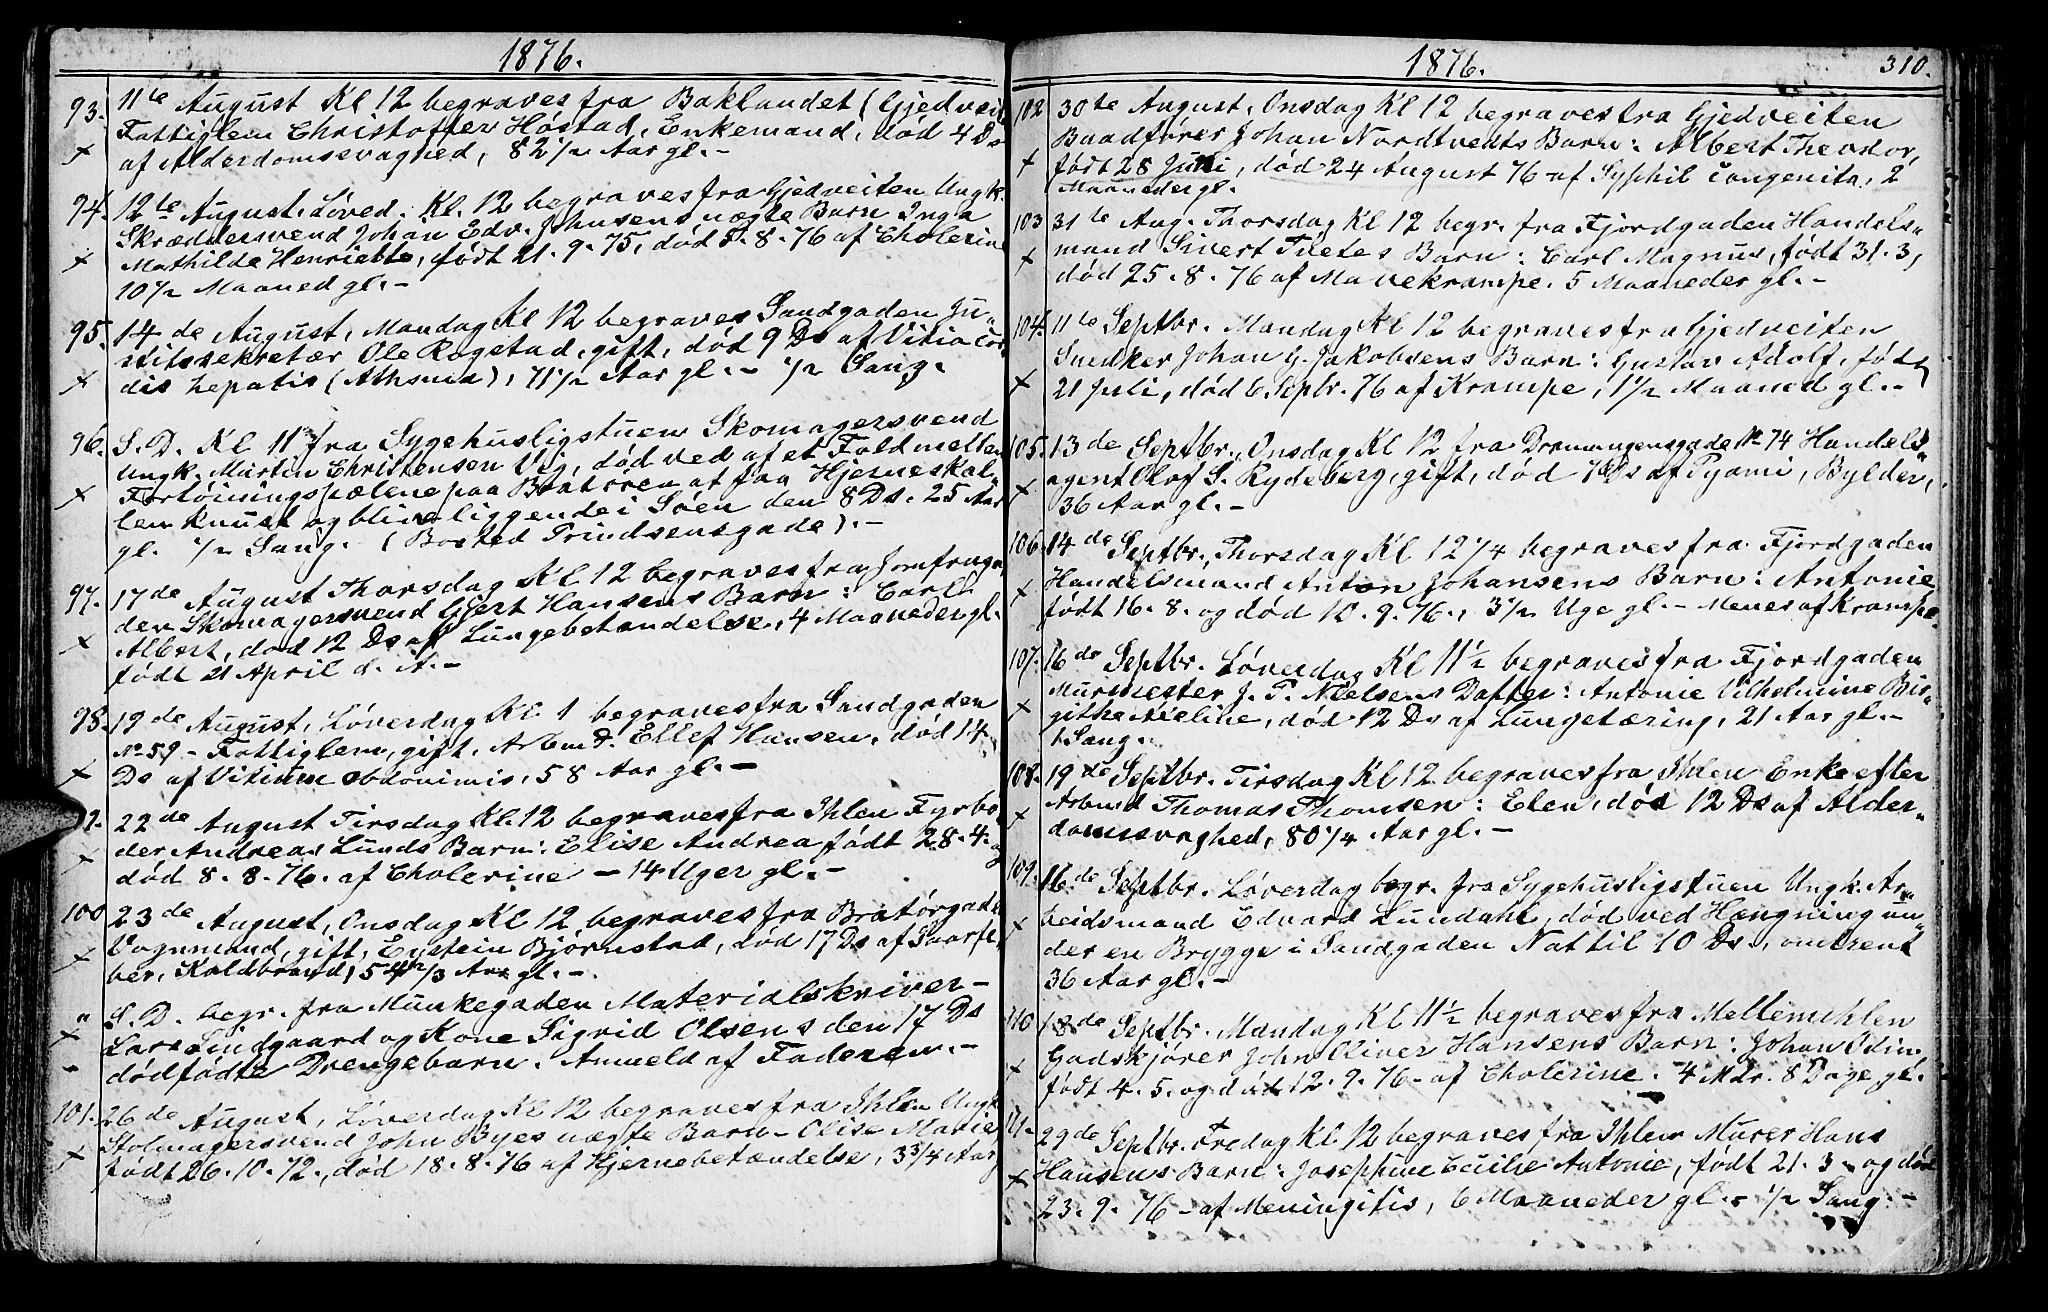 1876.
93. 11te August Kl 12 begraves fra Baklandet (Gjedveit
Fattiglem Christoffer Høstad, Enkemand, død 4 Ds
x af Alderdomssvaghed, 82 1/2 Aar gl. -
94. 12te August. Løved. Kl. 12 begraves fra Gjedveiten Ungk.
Skræddersvend Johan Edv. Johnsens uægte Barn Inga
x Mathilde Henriette, født 21. 9. 75, død 5. 8. 76 af Cholerine
10 1/2 Maaned gl. -
95. 14de August, Mandag Kl 12 begraves Sandgaden Ju-
stitssekretær Ole Rogstad, gift, død 9 Ds af Vitia Cor-
x dis hepatis (Athsma), 71 1/2 Aar gl. - 1/2 Sang.
96. S. D. Kl 11 fra Sygehusligstuen Skomagersvend
Ungk. Martin Christensen Vig, død ved af et Fald mellem
x Fortøiningspælene paa Bratøren at faa Hjerneskal-
len knust og blive liggende i Søen den 8 Ds. 25 Aar
gl. 1/2 Sang. (Bosted Trindsensgade). -
97. 17de August Thorsdag Kl 12 begraves fra Jomfruga-
den Skomagersvend Gjert Hansens Barn: Carl
x Albert, død 12 Ds af Lungebetændelse, 4 Maaneder gl.
født 21 April d. A. -
98. 19de August, Løverdag Kl. 1 begraves fra Sandgaden
No 59 - Fattiglem, gift, Arbmd. Ellef Hansen, død 14
x Ds af Vitium abdonimis, 58 Aar gl. -
9. 22de August Tirsdag Kl. 12 begraves fra Ihlen Fyrbø-
der Andreas Lunds Barn: Elise Andrea født 28. 4. og
x død 8. 8. 76. af Cholerine - 14 Uger gl. -
100 23de August, Onsdag Kl 12 begraves fra Bratørgade
x Vognmand, gift, Eystein Bjørnstad, død 17 Ds af Saarfe-
ber, Koldbrand, 54 1/3 Aar gl. -
" S. D. begr. fra Munkegaden Materialskriver -
x Lars Lindgaard og Kone Sigrid Olsens den 17 Ds
- dødfødte Drengebarn. Anmeld af Faderen. -
101. 26de August, Løverdag Kl 12 begraves fra Ihlen Ungk.
Stolmagersvend John Byes uægte Barn - Olise Marie
x født 26. 10. 72., død 18. 8. 76 af Hjernebetændelse, 3 3/4 Aar
1876. 310.
102 30te August, Onsdag Kl 12 begraves fra Gjedveiten
Baadfører Johan Nordtvedts Barn: Albert Theodor,
x født 28 Juni, død 24 August 76 af Syphil Congenita, 2
Maaneder gl.
103 31te Aug. Thorsdag Kl 12 begr. fra Fjordgaden Handels-
x mand Sivert Tvetes Barn: Carl Magnus, født 31. 3,
død 25. 8. 76 af Mavekrampe. 5 Maaneder gl. -
104. 11te Septbr. Mandag Kl 12 begraves fra Gjedveiten
Snedker Johan G. Jakobsens Barn: Gustav Adolf, født
x 21 Juli, død 6. Septbr. 76 af Krampe, 1 1/2 Maaned gl. -
105. 13de Septbr., Onsdag Kl 12 fra Dronningensgade No 74 Handels-
x agent Olof S. Rydeberg, gift, død Ds af Pyami, Bylder,
36 Aar gl. -
106. 14de Septbr., Thorsdag Kl 12 1/4 begraves fra Fjordgaden
x Handelsmand Anton Johansens Barn: Antonie
født 16. 8. og død 10. 9. 76., 3 1/2 Uge gl. - Menes af Krampe.
107. 16de Septbr. Løverdag Kl 11 1/2 begraves fra Fjordgaden
x Murmester J. P. Nielsens Datter: Antonie Vilhelmine Bir-
githe Meline, død 12 Ds af Lungetæring, 21 Aar gl. -
1 Sang.
108. 19de Septbr. Tirsdag Kl 12 begraves fra Ihlen Enke efter
x Arbmd Thomas Thomsen: Elen, død 12 Ds af Alder-
domssvaghed, 80 1/4 Aar gl. -
109. 16de Septbr. Løverdag begr. fra Sygehusligstuen Ungk. Ar-
x beidsmand Edvard Lundahl, død ved Hængning un-
der en Brygge i Sandgaden Nat til 10 Ds., omtrent
36 Aar gl. -
110 18de Septbr. Mandag Kl 11 1/2 begraves fra Mellemihlen
x Gadskjører John Oliver Hansens Barn: Johan Odin
født 4. 5. og død 12. 9. 76 - af Cholerine. 4 Mdr. 8 Dage gl.
111. 29de Septbr. Fredag Kl. 12 begraves fra Ihlen Murer Hans
x Hansens Barn: Josephine Cecilie Antonie, født 21. 3 - og død
23. 9. 76 - af Meningitis, 6 Maaneder gl. - 1/2 Sang. -